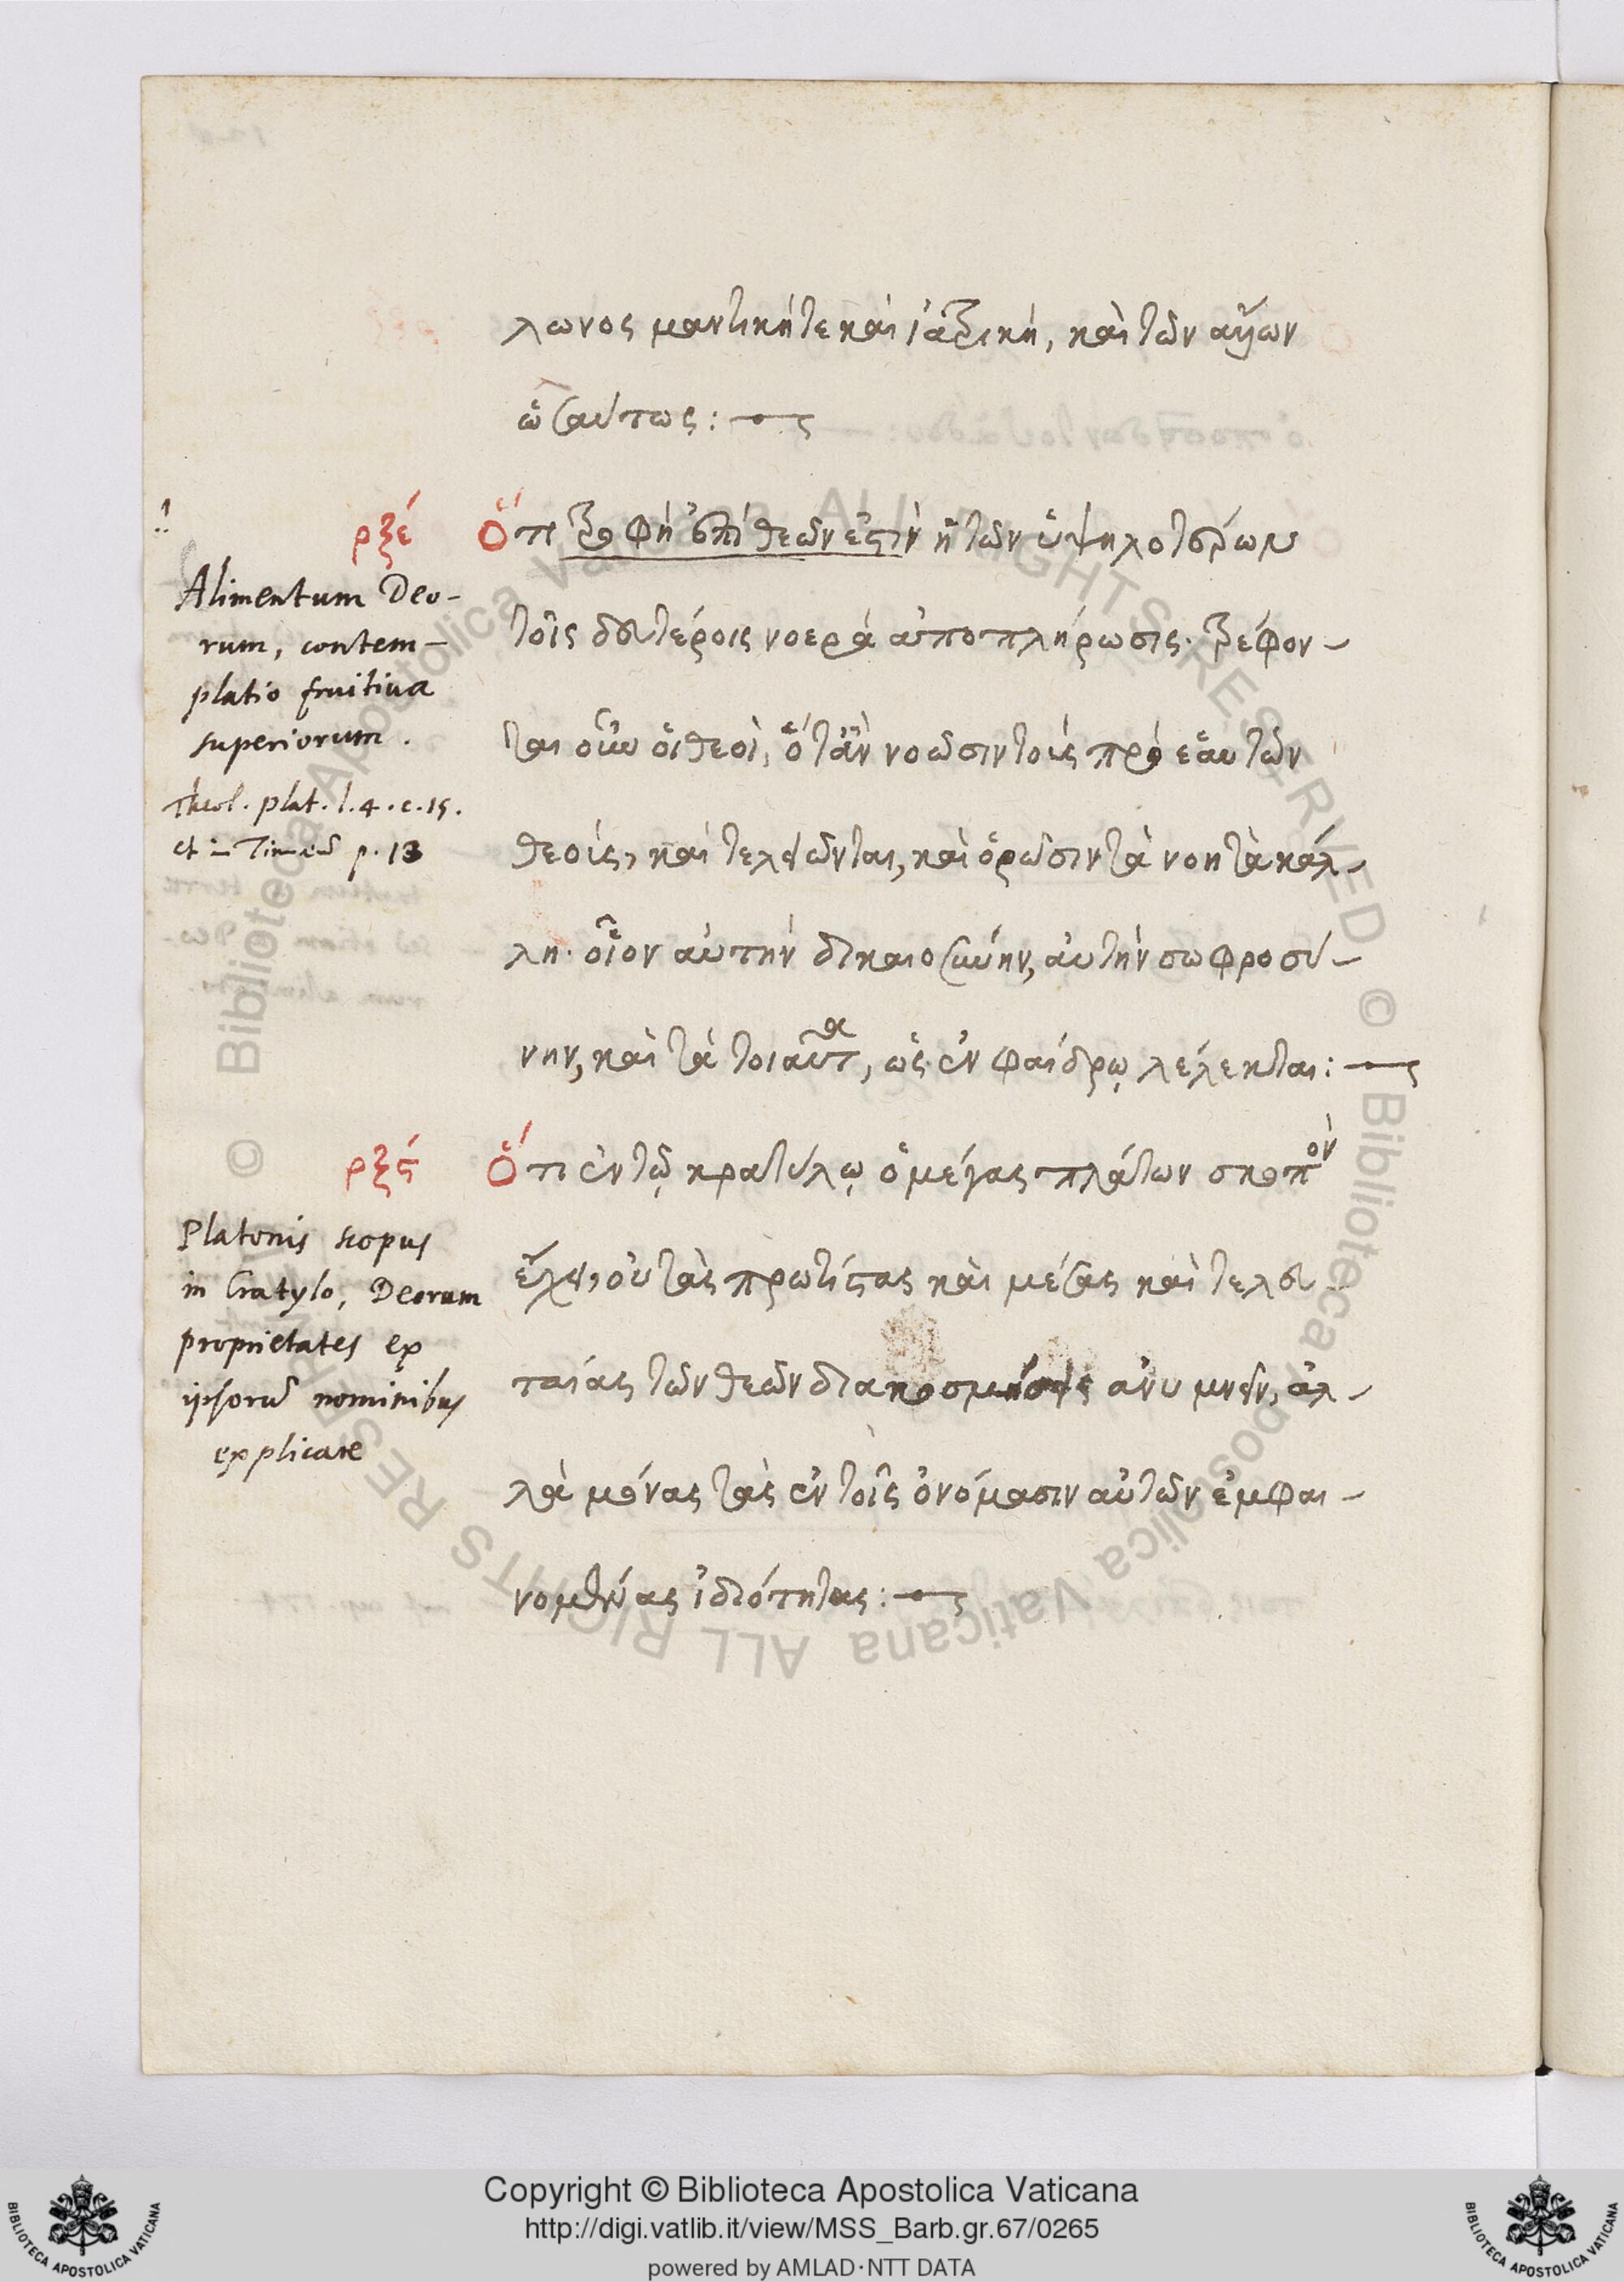 λωνος μαντική τε καὶ ἰατρική, καὶ τῶν ἄλλων
ὡσαύτως:
ρξε΄ Ὅτι τροφὴ ἐπὶ θεῶν ἐστὶν ἡ τῶν ὑψηλοτέρων
τοῖς δευτέροις νοερὰ ἀποπλήρωσις. τρέφον-
ται οὖν οἱ θεοὶ, ὅταν νοῶσιν τοὺς πρὸ ἑαυτῶν
θεούς, καὶ τελειῶνται, καὶ ὁρῶσιν τὰ νοητὰ κάλ-
λη. οἷον αὐτὴν δικαιοσύνην, αὐτὴν σωφροσύ-
νην, καὶ τὰ τοιαῦτα, ὡς ἐν φαίδρῳ λέλεκται:
Alimentum Deo-
rum, contem-
platio fruitiua
superiorum.
Theol. plat. l. 4. c. 15.
et in Timaeū p. 18
ρξς΄ Ὅτι ἐν τῷ κρατύλῳ ὁ μέγας πλάτων σκοπὸν
ἔχει, οὐ τὰς πρωτίστας καὶ μέσας καὶ τελευ-
ταίας τῶν θεῶν διακοσμήσεις ἀνυμνεῖν, ἀλ-
λὰ μόνας τὰς ἐν τοῖς ὀνόμασιν αὐτῶν ἐμφαι-
νομένας ἰδιότητας:
Platonis scopus
in Cratylo, Deorum
proprietates ex
ipsorū nominibus
explicare
© Biblioteca Apostolica Vaticana ALL RIGHTS RESERVED © Biblioteca Apostolica Vaticana ALL RIGHTS RESERVED
Copyright © Biblioteca Apostolica Vaticana
http://digi.vatlib.it/view/MSS_Barb.gr.67/0265
powered by AMLAD·NTT DATA
BIBLIOTECA APOSTOLICA VATICANA
BIBLIOTECA APOSTOLICA VATICANA